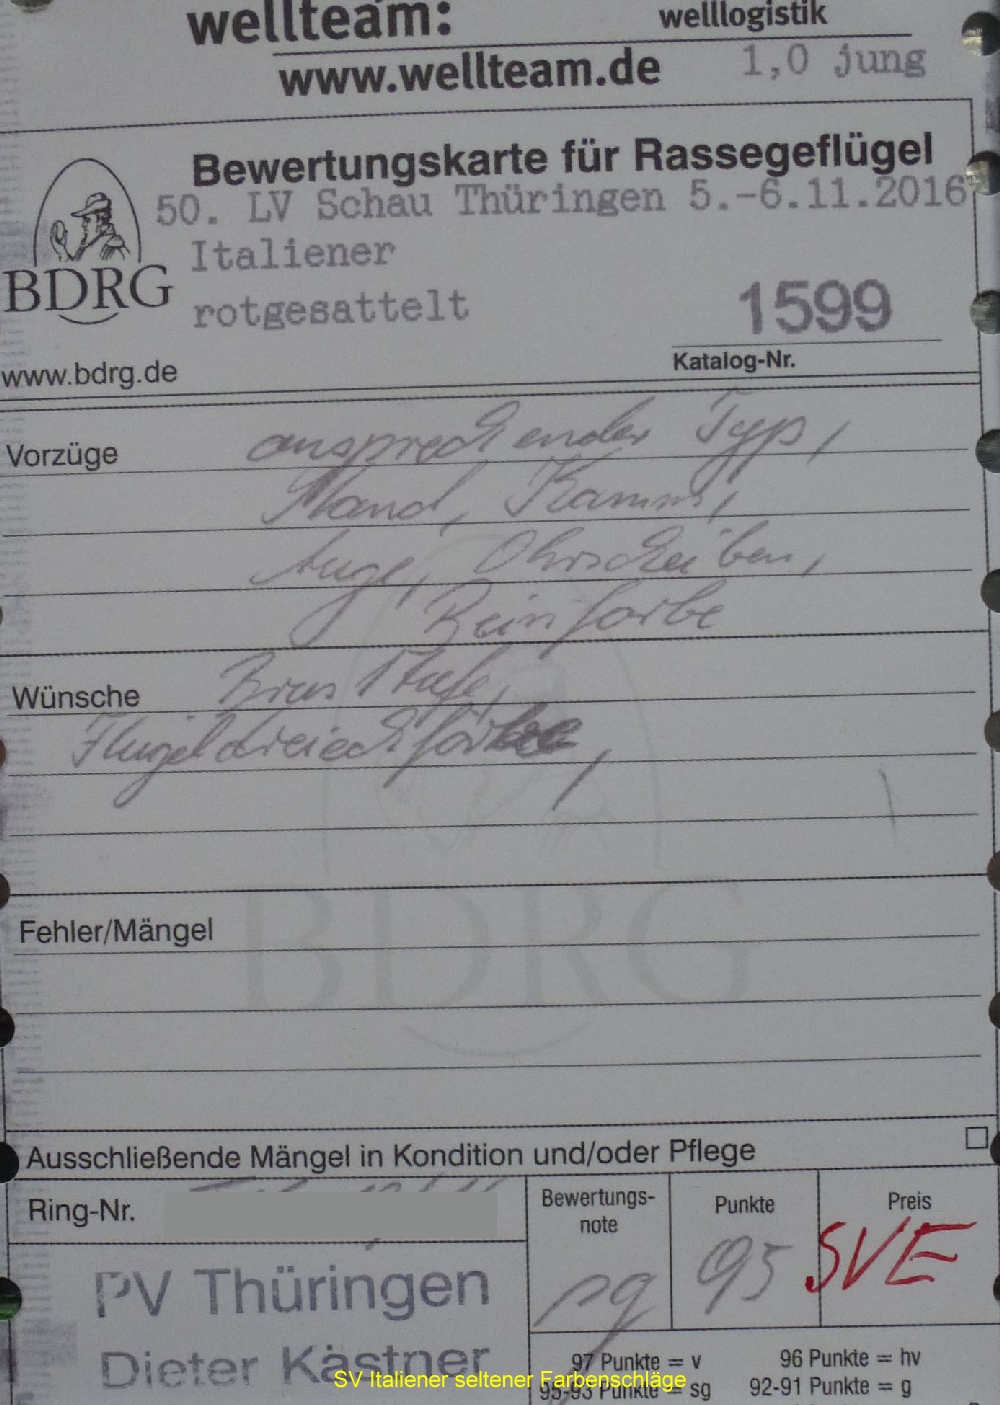 wellteam: welllogistik
www.wellteam.de 1,0 jung
Bewertungskarte für Rassegeflügel
50. LV Schau Thüringen 5.-6.11.2016
Italiener
BDRG
rotgesattelt
1599
Katalog-Nr.
www.bdrg.de
Vorzüge ansprechender Typ,
Stand, Kamm,
Auge, Ohrscheiben,
Beinfarbe
Wünsche Brusttiefe,
Flügeldreieckfarbe,
Fehler/Mängel
BDRG
Ausschließende Mängel in Kondition und/oder Pflege
Ring-Nr.
Bewertungs-
note
Punkte
Preis
sg 95 SVE
PV Thüringen
Dieter Kästner
97 Punkte = v 96 Punkte = hv
95-93 Punkte = sg 92-91 Punkte = g
SV Italiener seltener Farbenschläge